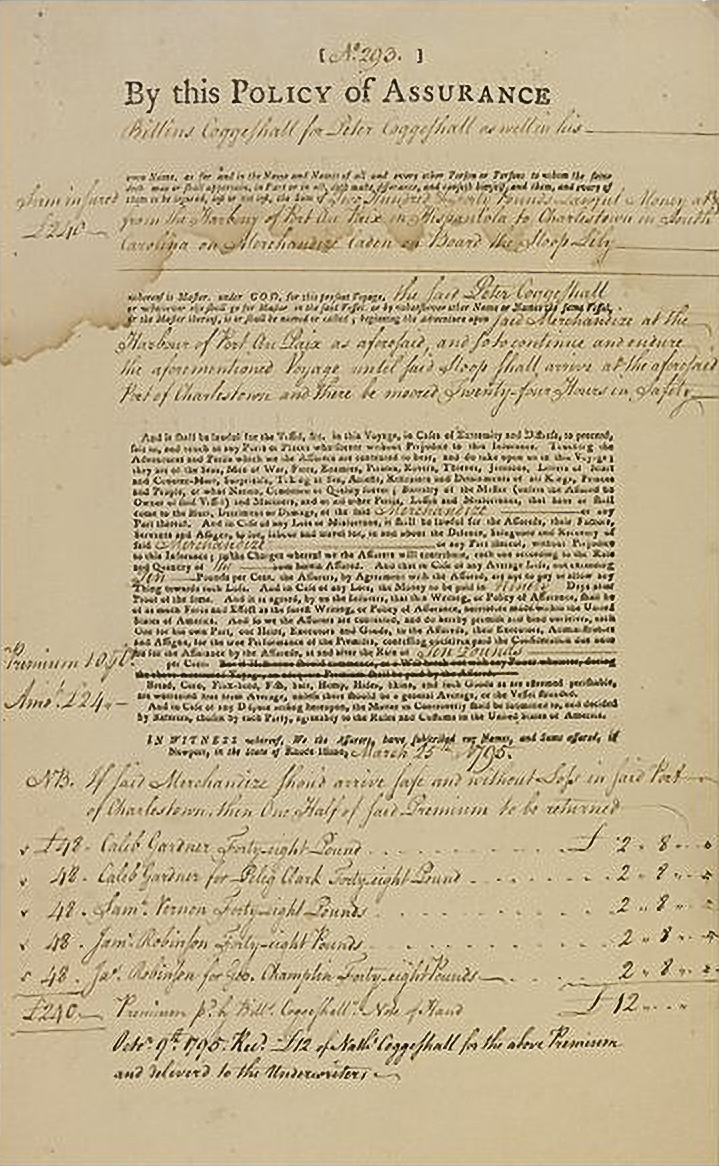 [ No. 293. ]
By this POLICY of ASSURANCE
Billins Coggeshall for Peter Coggeshall as well in his
own Name, as for and in the Name and Names of all and every other Person or Persons to whom the same
doth, may or shall appertain, in Part or in all, doth make Assurance, and causeth himself, and them, and every of
them to be insured, lost or not lost, the Sum of Two Hundred & Forty Pounds Lawful Money at &
Sum insured
£240
from the Harbour of Port Au Paix in Hispaniola to Charlestown in South
Carolina on Merchandize Laden on Board the Sloop Lily
whereof is Master, under GOD, for this present Voyage, the said Peter Coggeshall
or whosoever else shall go for Master in the said Vessel, or by whatsoever other Name or Names the same Vessel,
or the Master thereof, is or shall be named or called; beginning the Adventure upon said Merchandize at the
Harbour of Port Au Paix as aforesaid, and so to continue and endure
the aforementioned Voyage until said Sloop shall arrive at the aforesaid
Port of Charlestown and there be moored Twenty-four Hours in Safety
And it shall be lawful for the Vessel, &c. in this Voyage, in Cases of Extremity and Distress, to proceed,
sail to, and touch at any Ports or Places whatsoever without Prejudice to this Insurance. Touching the
Adventures and Perils which we the Assurers are contented to bear, and do take upon us in this Voyage;
they are of the Seas, Men of War, Fires, Enemies, Pirates, Rovers, Thieves, Jettisons, Letters of Mart
and Counter-Mart, Surprisals, Taking at Sea, Arrests, Restraints and Detainments of all Kings, Princes
and People, of what Nation, Condition or Quality soever; Barratry of the Master (unless the Assured be
Owner of said Vessel) and Mariners, and of all other Perils, Losses and Misfortunes, that have or shall
come to the Hurt, Detriment or Damage, of the said Merchandize or any
Part thereof. And in Case of any Loss or Misfortune, it shall be lawful for the Assureds, their Factors,
Servants and Assigns, to sue, labour and travel for, in and about the Defence, Safeguard and Recovery of
said Merchandize or any Part thereof, without Prejudice
to this Insurance; to the Charges whereof we the Assurers will contribute, each one according to the Rate
and Quantity of the Sum herein Assured. And that in Case of any Average Loss, not exceeding
Pounds per Cent. the Assurers, by Agreement with the Assured, are not to pay or allow any
Thing towards such Loss. And in Case of any Loss, the Money to be paid in Days after
Proof of the same. And it is agreed, by us the Insurers, that this Writing, or Policy of Assurance, shall be
of as much Force and Effect as the surest Writing, or Policy of Assurance, heretofore made within the United
States of America. And so we the Assurers are contented, and do hereby promise and bind ourselves, each
One for his own Part, our Heirs, Executors and Goods, to the Assureds, their Executors, Administrators
and Assigns, for the true Performance of the Premises, confessing ourselves paid the Consideration due unto
us for the Assurance by the Assureds, at and after the Rate of Ten Pounds
Premium
Amo. £24
per Cent.
Bread, Corn, Flax-seed, Fish, Salt, Hemp, Hides, Skins, and such Goods as are esteemed perishable,
are warranted free from Average, unless there should be a general Average, or the Vessel stranded.
And in Case of any Dispute arising hereupon, the Matter in Controversy shall be submitted to, and decided
by Referees, chosen by each Party, agreeably to the Rules and Customs in the United States of America.
IN WITNESS whereof, We the Assurers, have subscribed our Names, and Sums assured, at
Newport, in the State of Rhode-Island, March 25th 1795.
NB. If said Merchandize should arrive safe and without Loss in said Port
of Charlestown, then One Half of said Premium to be returned
£48 - Caleb Gardner Forty-eight Pound £ 2 " 8 "
48 - Caleb Gardner for Peleg Clark Forty-eight Pound 2 " 8 "
48 - Saml. Vernon Forty-eight Pounds 2 " 8 "
48 - Jam. Robinson Forty-eight Pounds 2 " 8 "
48 - Jas. Robinson for Geo. Champlin Forty-eight Pounds 2 " 8 "
£240 Premium pd. by Bills. Coggeshall's Note of Hand £12
Octr. 9th. 1795. Recd. £12 of Nathl. Coggeshall for the above Premium
and deliverd to the Underwriters